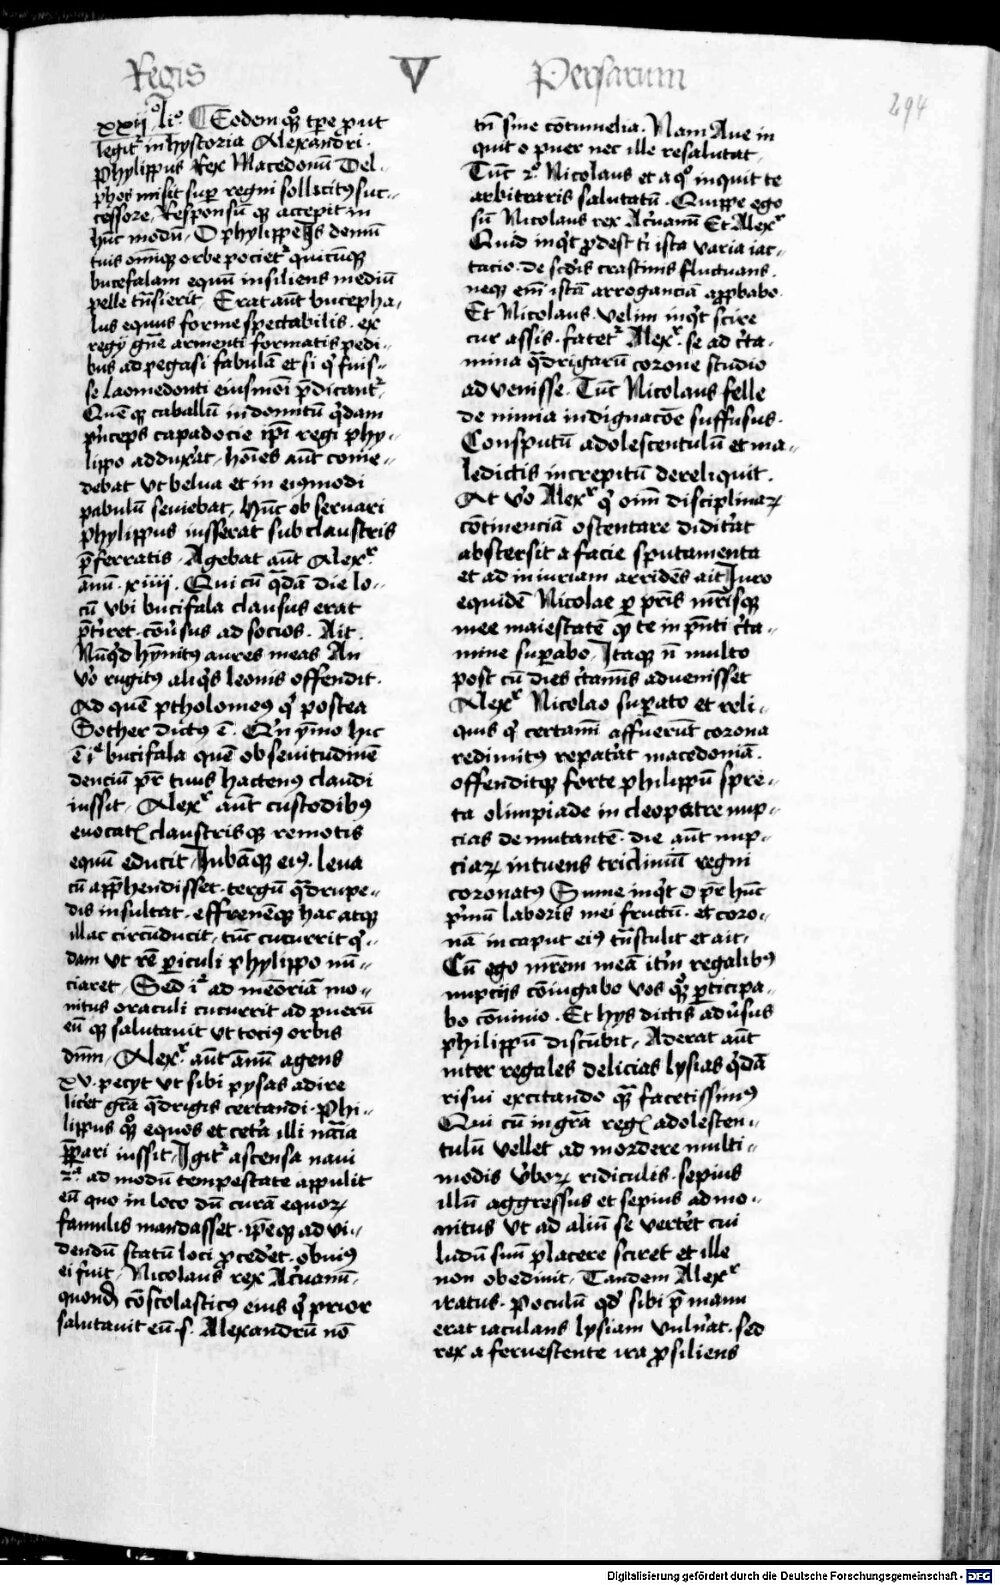 Regis V Persarum
294
xxij° li°. Eodem qꝫ tꝑe ꝓut
legitʳ in hystoria Alexandri.
phylippus Rex Macedonū Del-
phos misit suꝑ regni sollicitꝰ suc-
cessore, Responsū qꝫ accepit in
hūc modū, O phylippe Is demū
tuis om̄iqꝫ orbe pocietʳ quicūqꝫ
bucefalam equū insiliens mediū
pelle tn̄sierit, Erat aūt bucepha-
lus equus forme spectabilis. ex
regÿ gn̄e armenti formatis pedi-
bus ad pegasi fabulā et si qͥ fuis-
se laomedonti eiusmōi p̄dicantʳ,
Quē qꝫ caballū indomitū qͥdam
pͥnceps capadocie ip̄i regi phy-
lippo adduxʼat, hoīes aūt come-
debat vt belua et in eiꝰmodi
pabulū seviebat, hūc ob servari
phylippus iusserat sub claustris
p̄ferratis. Agebat aūt Alexʳ
ānū. xiiii. Qui cū qͣdā die lo-
cū vbi bucifala clausus erat
p̄tiret. cōuʼsus ad socios. Ait.
Nūqͥd hȳnitꝰ aures meas An
vʼo rugitꝰ aliqͥs leonis offendit.
Ad quē ptholomeꝰ qͥ postea
Sother dictꝰ ē. Qͥn ymo hic
ē iͣ bucifala quē ob sevitudinē
denciū pr̄ tuus hactenꝰ claudi
iussit, Alexʳ aūt custodibꝰ
evocatꝭ claustrisqꝫ remotis
equū educit, Iubāqꝫ eiꝰ. leva
cū app̄hendisset. tergū qͣdrupe-
dis insultat. effrenēqꝫ hac atqꝫ
illac circūducit, tūc cucurrit qͥ-
dam vt rē ꝑiculi phylippo nū-
ciaret, Sed iͣ ad meōriā mo-
nitus oraculi cucurrit ad puerū
eū qꝫ salutauit vt tociꝰ orbis
dn̄m, Alexʳ. aūt ānū agens
xv. pecyt vt sibi pysas adire
licet grā qͣdrigis certandi. Phi-
lippus qꝫ equos et cetʼa illi nāia
ꝓpari iussit, Igitʳ ascensa navi
rͣ. ad modū tempestate appulit
eū quo in loco dū curā equoꝝ
famulis mandasset. ip̄eqꝫ ad vi-
dendū statū loci ꝓcedʼet. obuiꝰ
ei fuit, Nicolaus rex Acͣuanū-
quondā cōscolasticꝰ eius qͥ prior
salutauit eū. s. Alexandrū nō
tn̄ sine cōtumelia. Nam Aue in
quit o puer nec ille resalutat,
Tūc rͦ. Nicolaus et a qͦ inquit te
arbitraris salutatū. Quippe ego
sū Nicolaus rex Acͣuanū Et Alexʳ
Quid inqͥt ꝓdest ti ista varia iac-
tacio. de scd̄is crastinis fluctuans.
neqꝫ em̄ istā arroganciā app̄babo.
Et Nicolaus. velim inqͥt scire
cur assis. fatetʳ Alexʳ. se ad cʼta-
mina qͣdrigarū corone studio
advenisse. Tūc Nicolaus felle
de nimia indignacōe suffusus.
Consputū adolescentulū et ma-
ledictis increpitū dereliquit.
At vʼo Alexʳ qͥ oīm disciplinaꝝ
cōtinenciā ostentare didicʼat
abstersit a facie sputamenta
et ad iniuriam arridēs ait Iuro
equidē Nicolae ꝑ pr̄is mr̄isqꝫ
mee maiestatē qꝫ te in p̄nti cʼta-
mine suꝑabo, Itaqꝫ n̄ multo
post cū dies cʼtamīs advenisset
Alexʳ Nicolao suꝑato et reli-
quis qͥ certamī affuerūt corona
redimitꝰ repatʼat macedoniā.
offenditqꝫ forte philippū spre-
ta olimpiade in cleopatre nup-
cias demutantē. die aūt nup-
ciaꝝ intuens tricliniū regni
coronatꝰ Sume inqͥt o pr̄ hūc
pͥmū laboris mei fructū. et coro-
nā in caput eiꝰ tn̄stulit et ait,
Cū ego mr̄em meā itʼm regalibꝰ
nupcijs cōiugabo vos qꝫ ꝑticipa-
bo cōvivio. Et hys dictis aduʼsus
philippū discūbit, Aderat aūt
inter regales delicias lysias qͥdā
risui excitando qͣꝫ facetissimꝰ
Qui cū in grā regꝭ adolescen-
tulū vellet ad mordere multi-
modis vʼboꝝ ridiculis. sepius
illū aggressus et sepius admo-
nitus vt ad aliū se vertʼet cui
ludū suū placere sciret et ille
non obedivit, Tandem Alexʳ
iratus. poculū qd̄ sibi p̄ manu
erat iaculans lysiam vulnʼat. sed
rex a fervestente ira ꝓsiliens
Digitalisierung gefördert durch die Deutsche Forschungsgemeinschaft - DFG